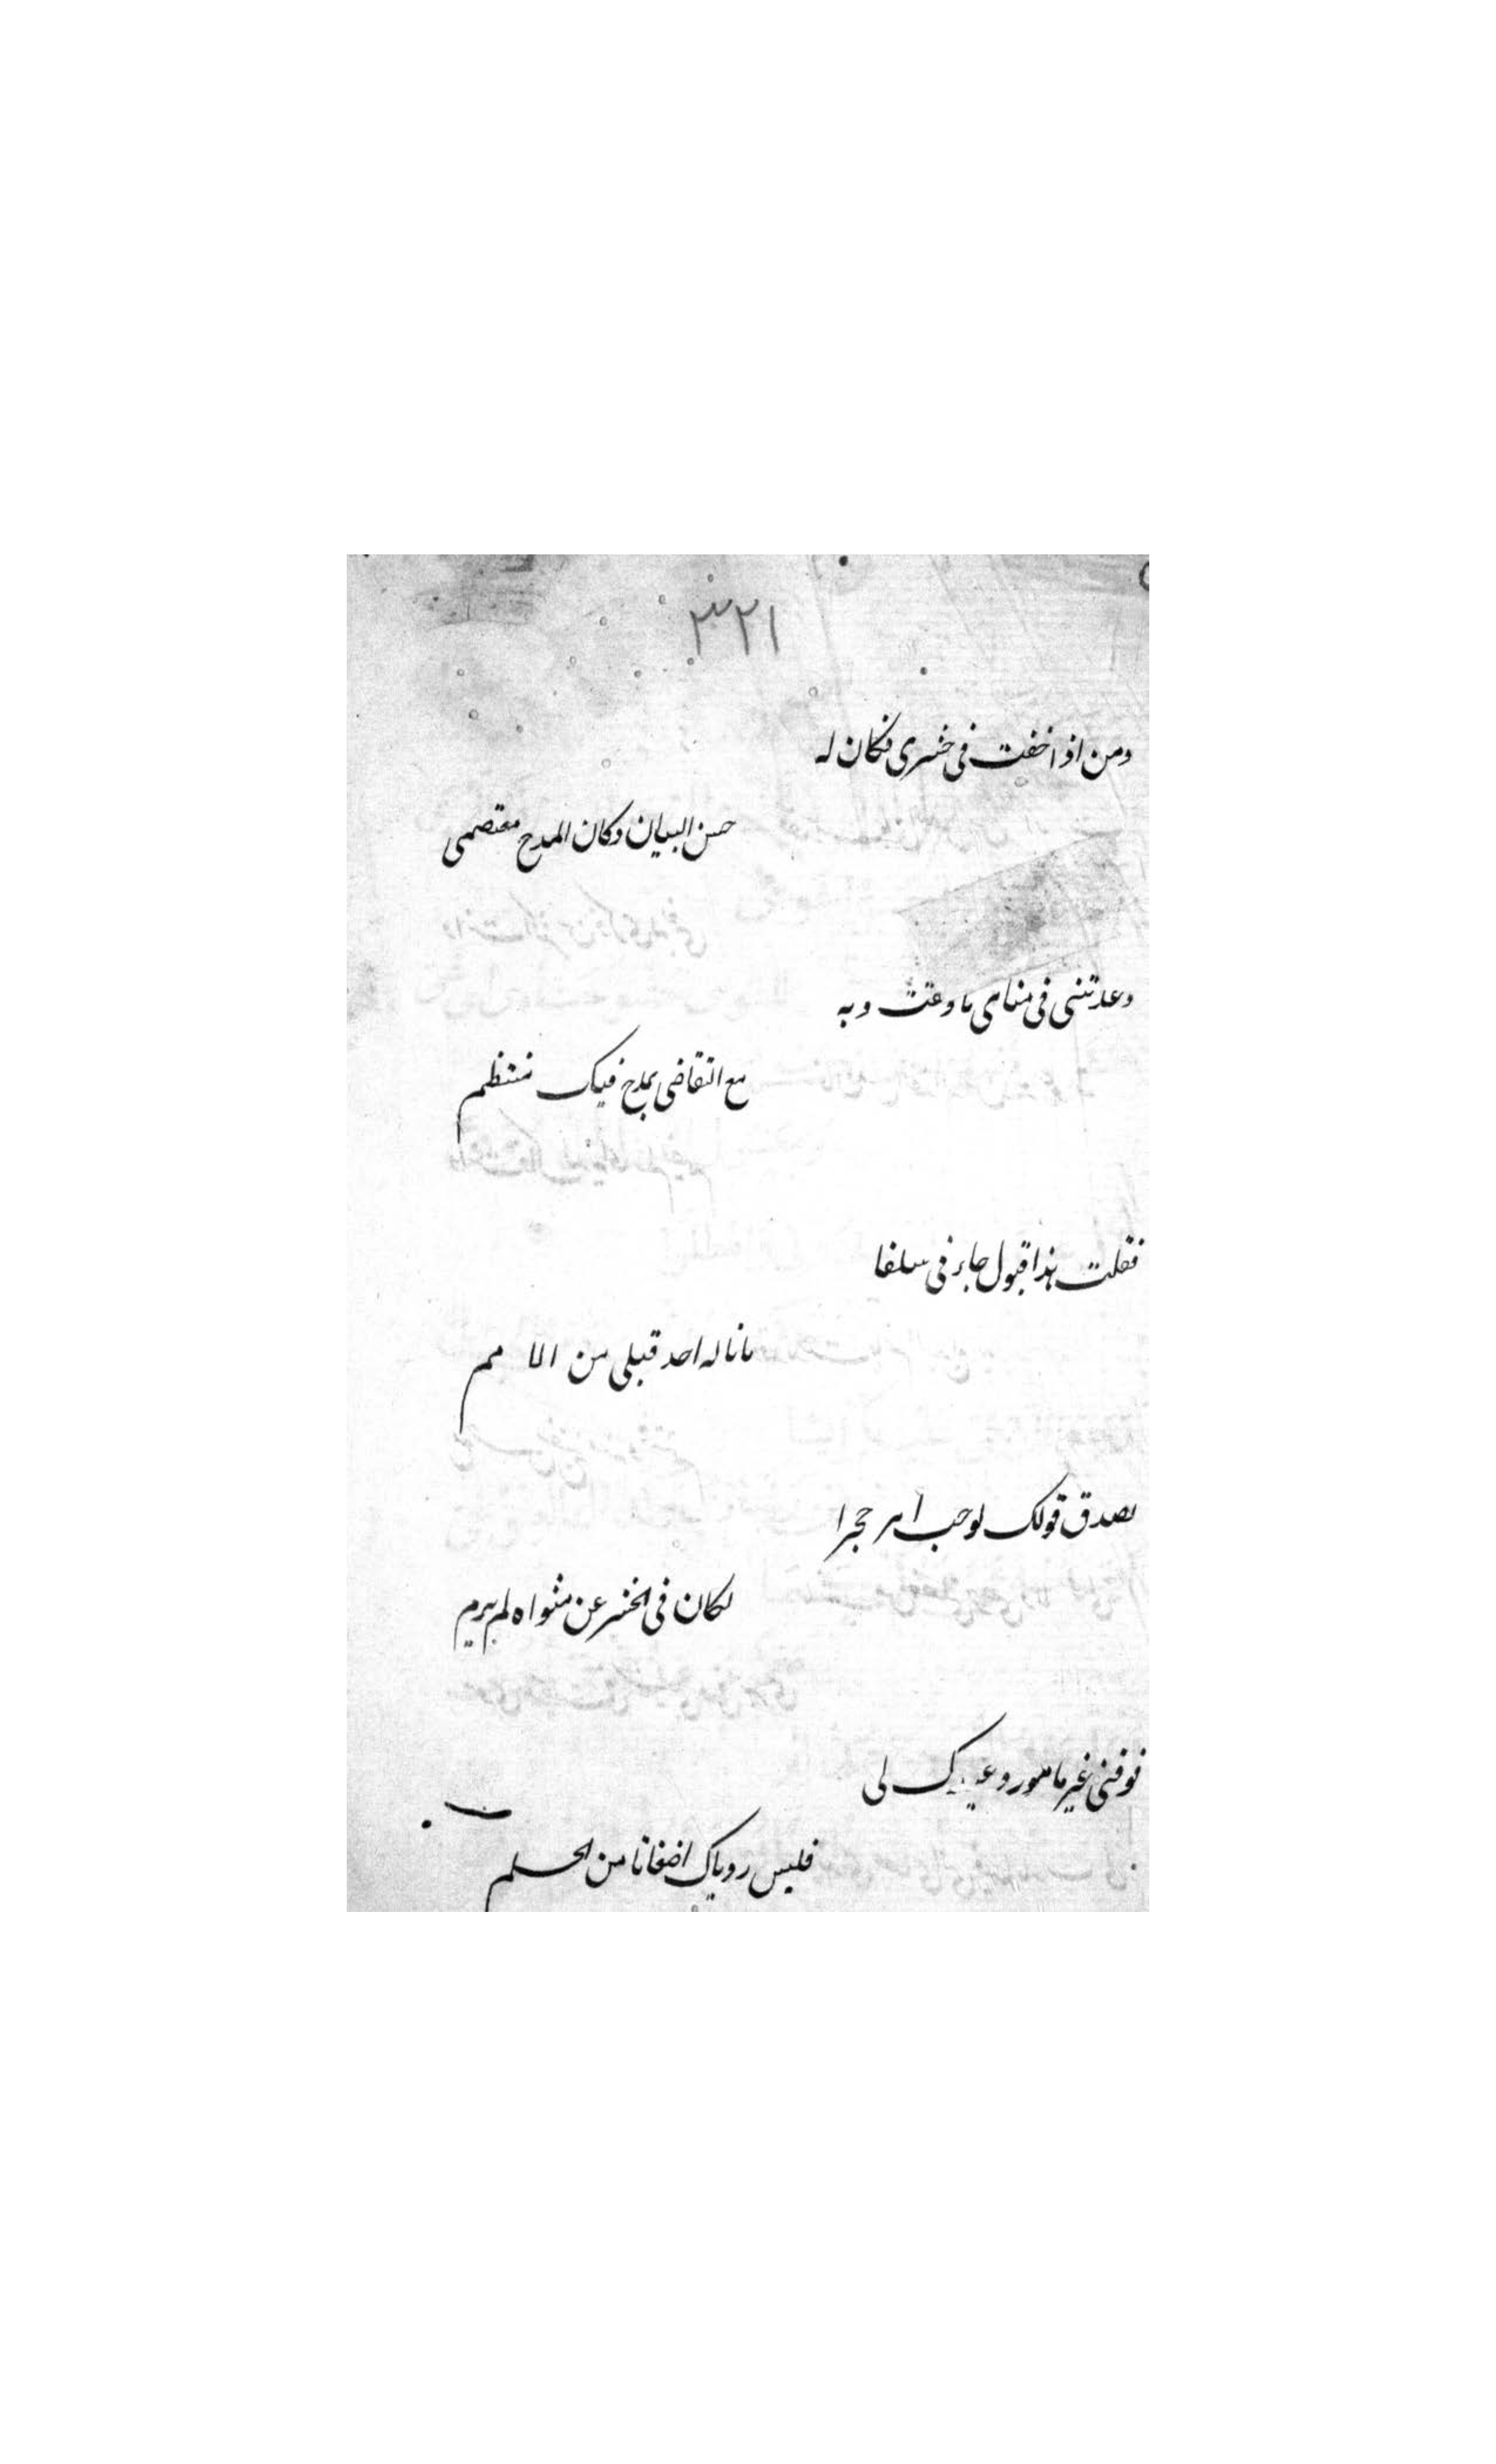 ٣٢١
ومن اذا خفت فی حشری فكان له
حسن البيان وكان المدح معتصمی
وعدتنی فی منامی ما وثقت به
مع التقاضی بمدح فيك منتظم
فقلت هذا قبول جاءنی سلفا
ما ناله احد قبلی من الامم
لصدق قولك لو حب امرء حجرا
لكان فی الحشر عن مثواه لم يرم
فوفنی غير مامور وعيدك لی
فليس روياك اضغاثا من الحلم